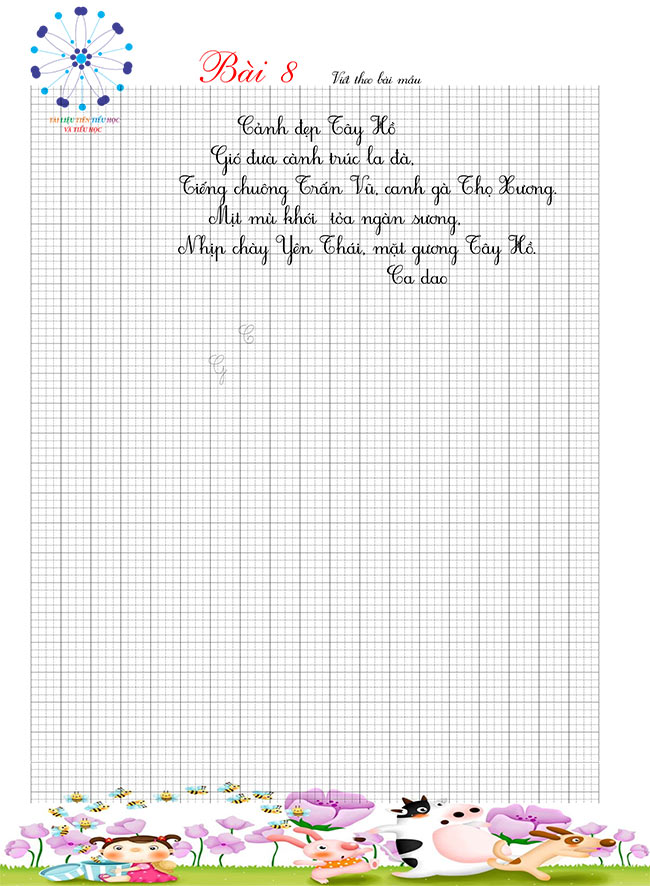 TÀI LIỆU TIỀN TIỂU HỌC
VÀ TIỂU HỌC
Bài 8 Viết theo bài mẫu
Cảnh đẹp Tây Hồ
Gió đưa cành trúc la đà,
Tiếng chuông Trấn Vũ, canh gà Thọ Xương.
Mịt mù khói tỏa ngàn sương,
Nhịp chày Yên Thái, mặt gương Tây Hồ.
Ca dao
C
G